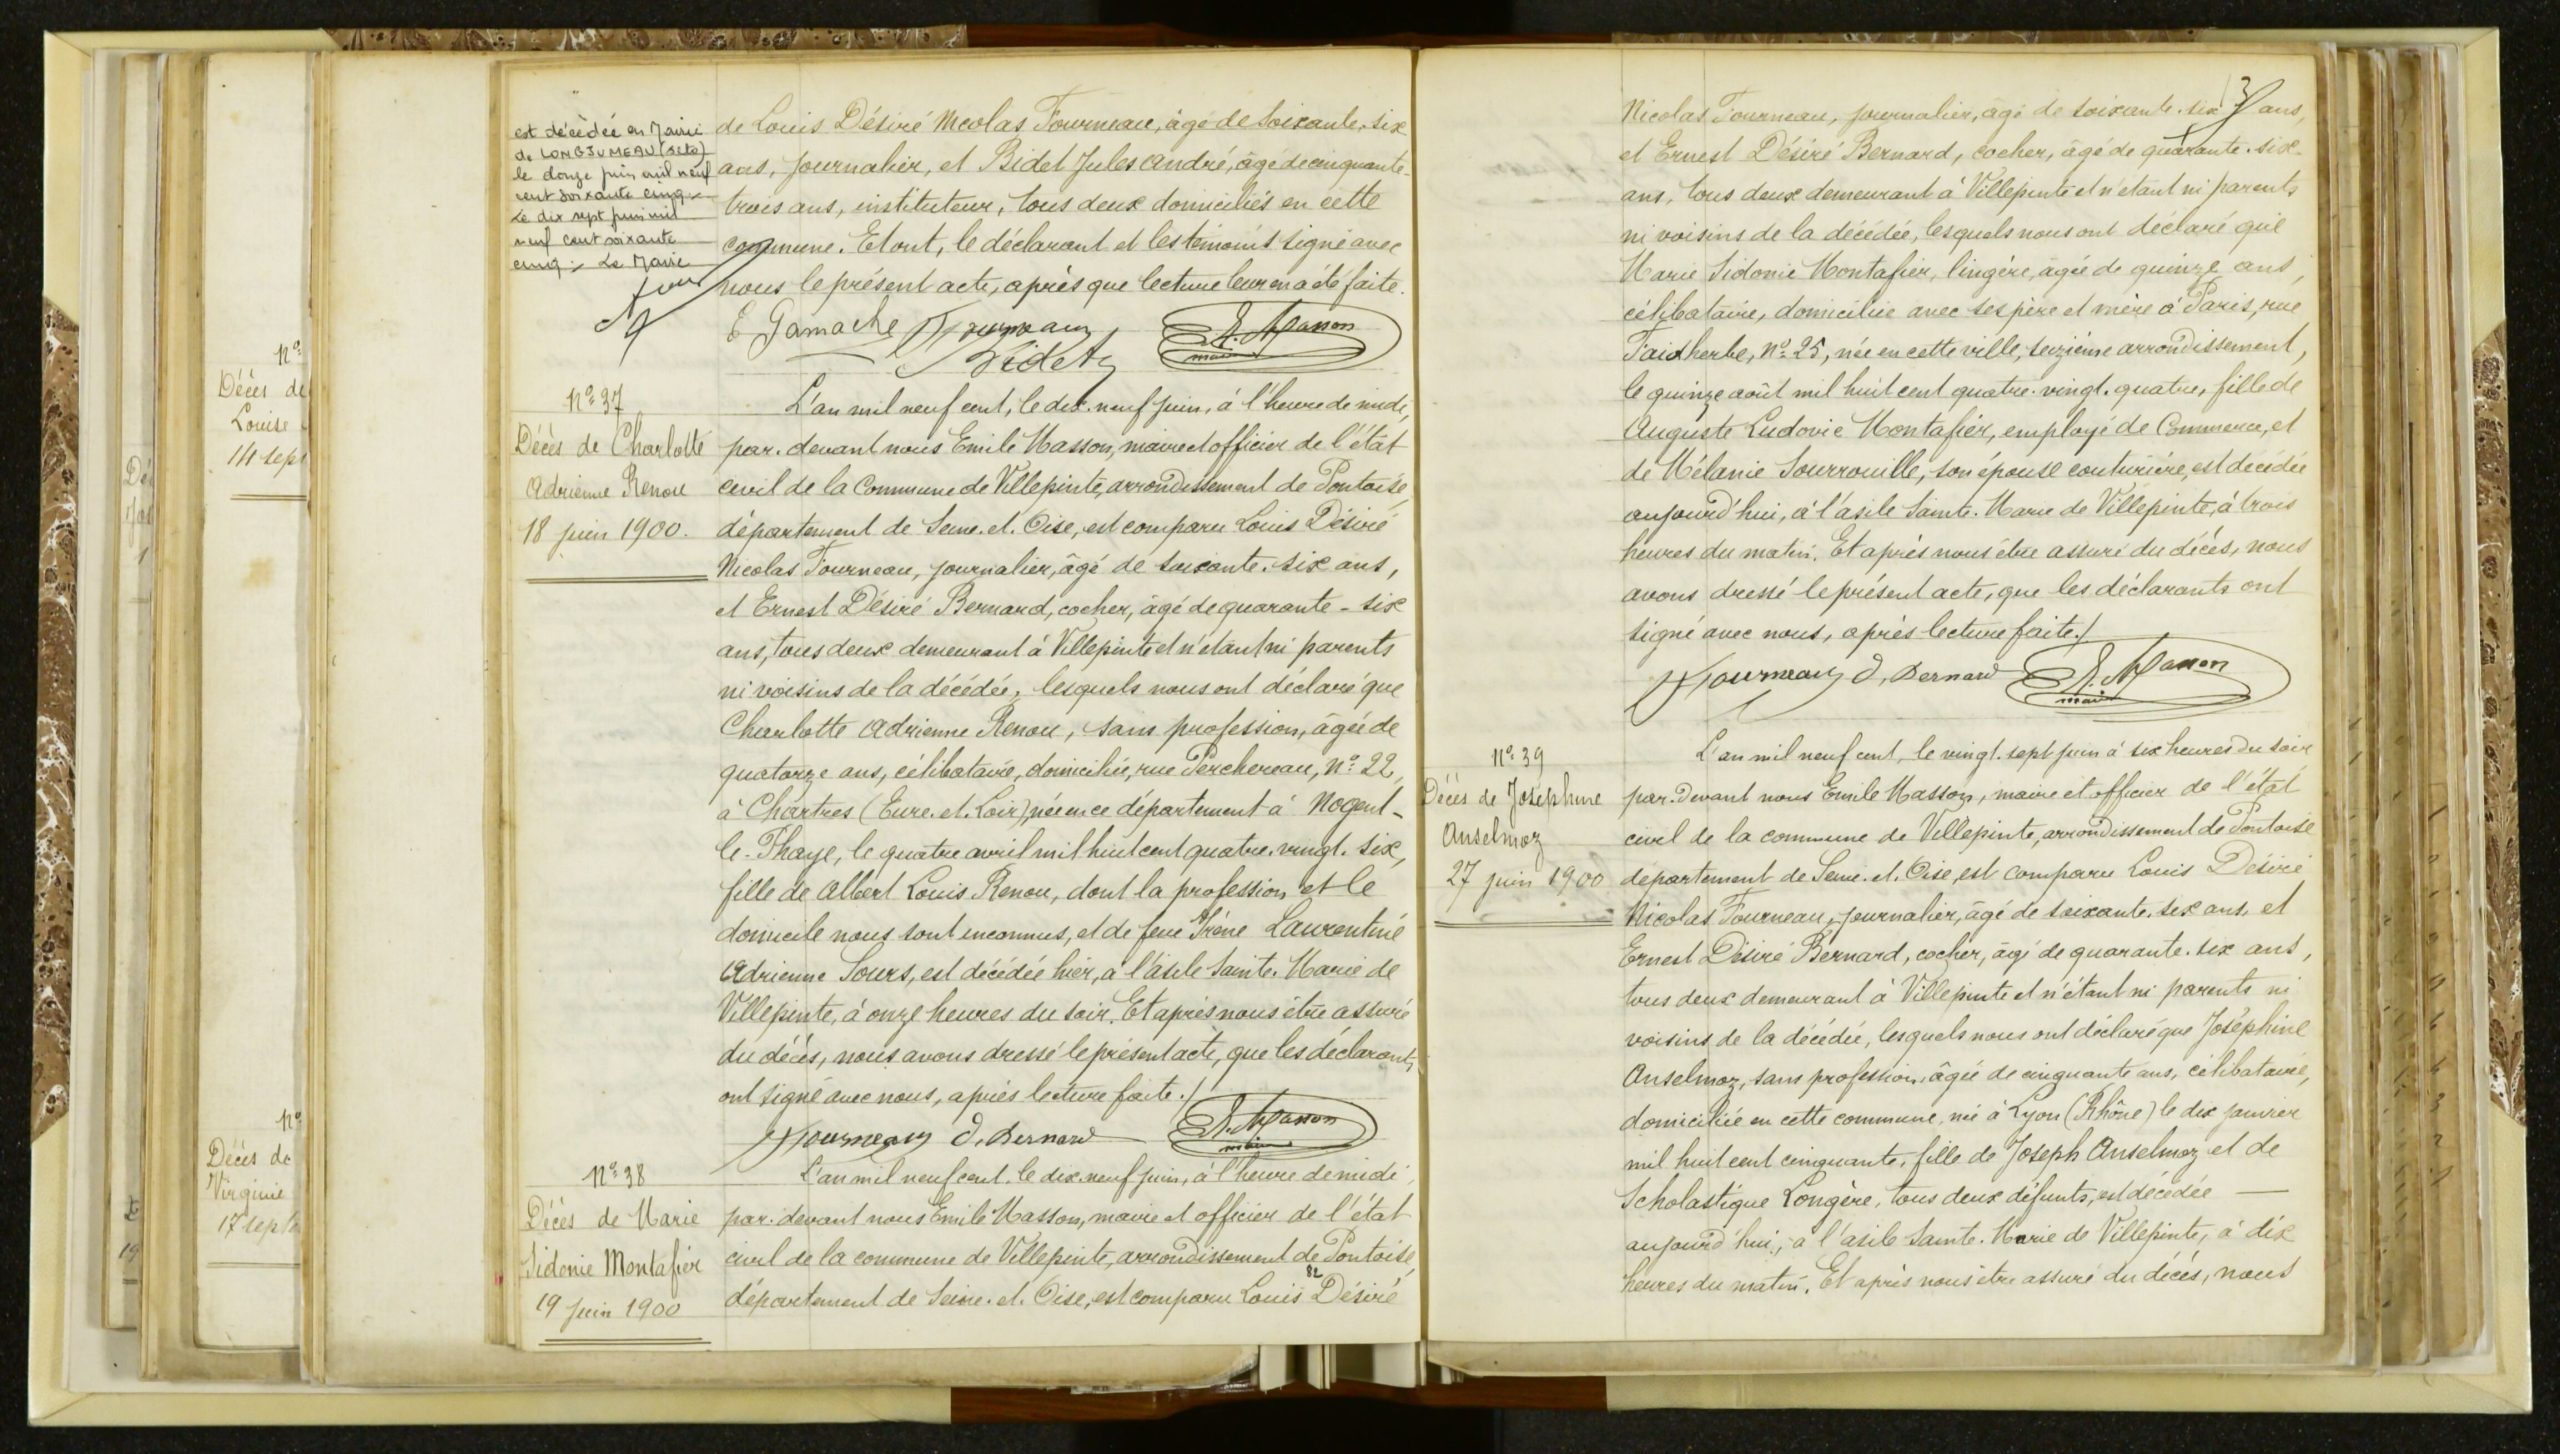 Nº
Décès de
Louise
14 sept
Nº
Décès de
Virginie
17 septe
19
est décédée en Mairie
de LONGJUMEAU (S et O)
le douze juin mil neuf
cent soixante cinq.
Le dix sept juin mil
neuf cent soixante
cinq. Le Maire
de Louis Désiré Nicolas Fourneau, âgé de soixante-six
ans, journalier, et Bidet Jules André, âgé de cinquante-
trois ans, instituteur, tous deux domiciliés en cette
commune. Et ont, le déclarant et les témoins signé avec
nous le présent acte, après que lecture leur en a été faite.
E Gamache Fourneau E. Masson
Bidet maire
Nº 37
Décès de Charlotte
Adrienne Renou
18 juin 1900.
L'an mil neuf cent, le dix-neuf juin, à l'heure de midi,
par-devant nous Emile Masson, maire et officier de l'état
civil de la Commune de Villepinte, arrondissement de Pontoise,
département de Seine-et-Oise, est comparu Louis Désiré
Nicolas Fourneau, journalier, âgé de soixante-six ans,
et Ernest Désiré Bernard, cocher, âgé de quarante-six
ans, tous deux demeurant à Villepinte et n'étant ni parents
ni voisins de la décédée, lesquels nous ont déclaré que
Charlotte Adrienne Renou, sans profession, âgée de
quatorze ans, célibataire, domiciliée, rue Perchereau, Nº 22,
à Chartres (Eure-et-Loir), née en ce département à Nogent-
le-Phaye, le quatre avril mil huit cent quatre-vingt-six,
fille de Albert Louis Renou, dont la profession et le
domicile nous sont inconnus, et de feue Irène Laurentine
Adrienne Sours, est décédée hier, à l'asile Sainte-Marie de
Villepinte, à onze heures du soir. Et après nous être assuré
du décès, nous avons dressé le présent acte, que les déclarants
ont signé avec nous, après lecture faite./
Fourneau D. Bernard E. Masson
maire
Nº 38
Décès de Marie
Sidonie Montafier
19 juin 1900
L'an mil neuf cent, le dix-neuf juin, à l'heure de midi,
par-devant nous Emile Masson, maire et officier de l'état
civil de la commune de Villepinte, arrondissement de Pontoise,
82
département de Seine-et-Oise, est comparu Louis Désiré
Nicolas Fourneau, journalier, âgé de soixante-six ans,
et Ernest Désiré Bernard, cocher, âgé de quarante-six
ans, tous deux demeurant à Villepinte et n'étant ni parents
ni voisins de la décédée, lesquels nous ont déclaré que
Marie Sidonie Montafier, lingère, âgée de quinze ans,
célibataire, domiciliée avec ses père et mère à Paris, rue
Faidherbe, Nº 25, née en cette ville, seizième arrondissement,
le quinze août mil huit cent quatre-vingt-quatre, fille de
Auguste Ludovic Montafier, employé de Commerce, et
de Mélanie Sourrouille, son épouse couturière, est décédée
aujourd'hui, à l'asile Sainte-Marie de Villepinte, à trois
heures du matin. Et après nous être assuré du décès, nous
avons dressé le présent acte, que les déclarants ont
signé avec nous, après lecture faite./
Fourneau D. Bernard E. Masson
maire
Nº 39
Décès de Joséphine
Anselmoz
27 juin 1900
L'an mil neuf cent, le vingt-sept juin à six heures du soir
par-devant nous Emile Masson, maire et officier de l'état
civil de la commune de Villepinte, arrondissement de Pontoise
département de Seine-et-Oise, est comparu Louis Désiré
Nicolas Fourneau, journalier, âgé de soixante-six ans, et
Ernest Désiré Bernard, cocher, âgé de quarante-six ans,
tous deux demeurant à Villepinte et n'étant ni parents ni
voisins de la décédée, lesquels nous ont déclaré que Joséphine
Anselmoz, sans profession, âgée de cinquante ans, célibataire,
domiciliée en cette commune, née à Lyon (Rhône) le dix janvier
mil huit cent cinquante, fille de Joseph Anselmoz et de
Scholastique Longère, tous deux défunts, est décédée —
aujourd'hui, à l'asile Sainte-Marie de Villepinte, à dix
heures du matin. Et après nous être assuré du décès, nous